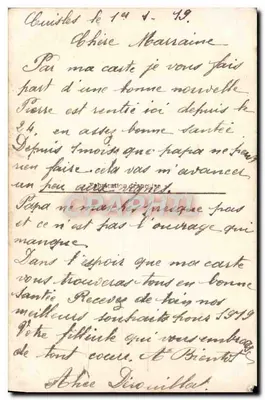 Cuisles le 1er 1. 19.
Chère Marraine
Par ma carte je vous fais
part d'une bonne nouvelle
Pierre est rentré ici depuis le
24. en assez bonne santé
Depuis 1 mois que papa ne peut
rien faire cela vas m'avancer
un peu aux vignes.
Papa ne marche que pas
et ce n'est pas l'ouvrage qui
manque
Dans l'espoir que ma carte
vous trouveras tous en bonne
Santé, Recevez de tous nos
meilleurs souhaits pour 1919
Votre filleule qui vous embrasse
de tout cœur. A Bientôt